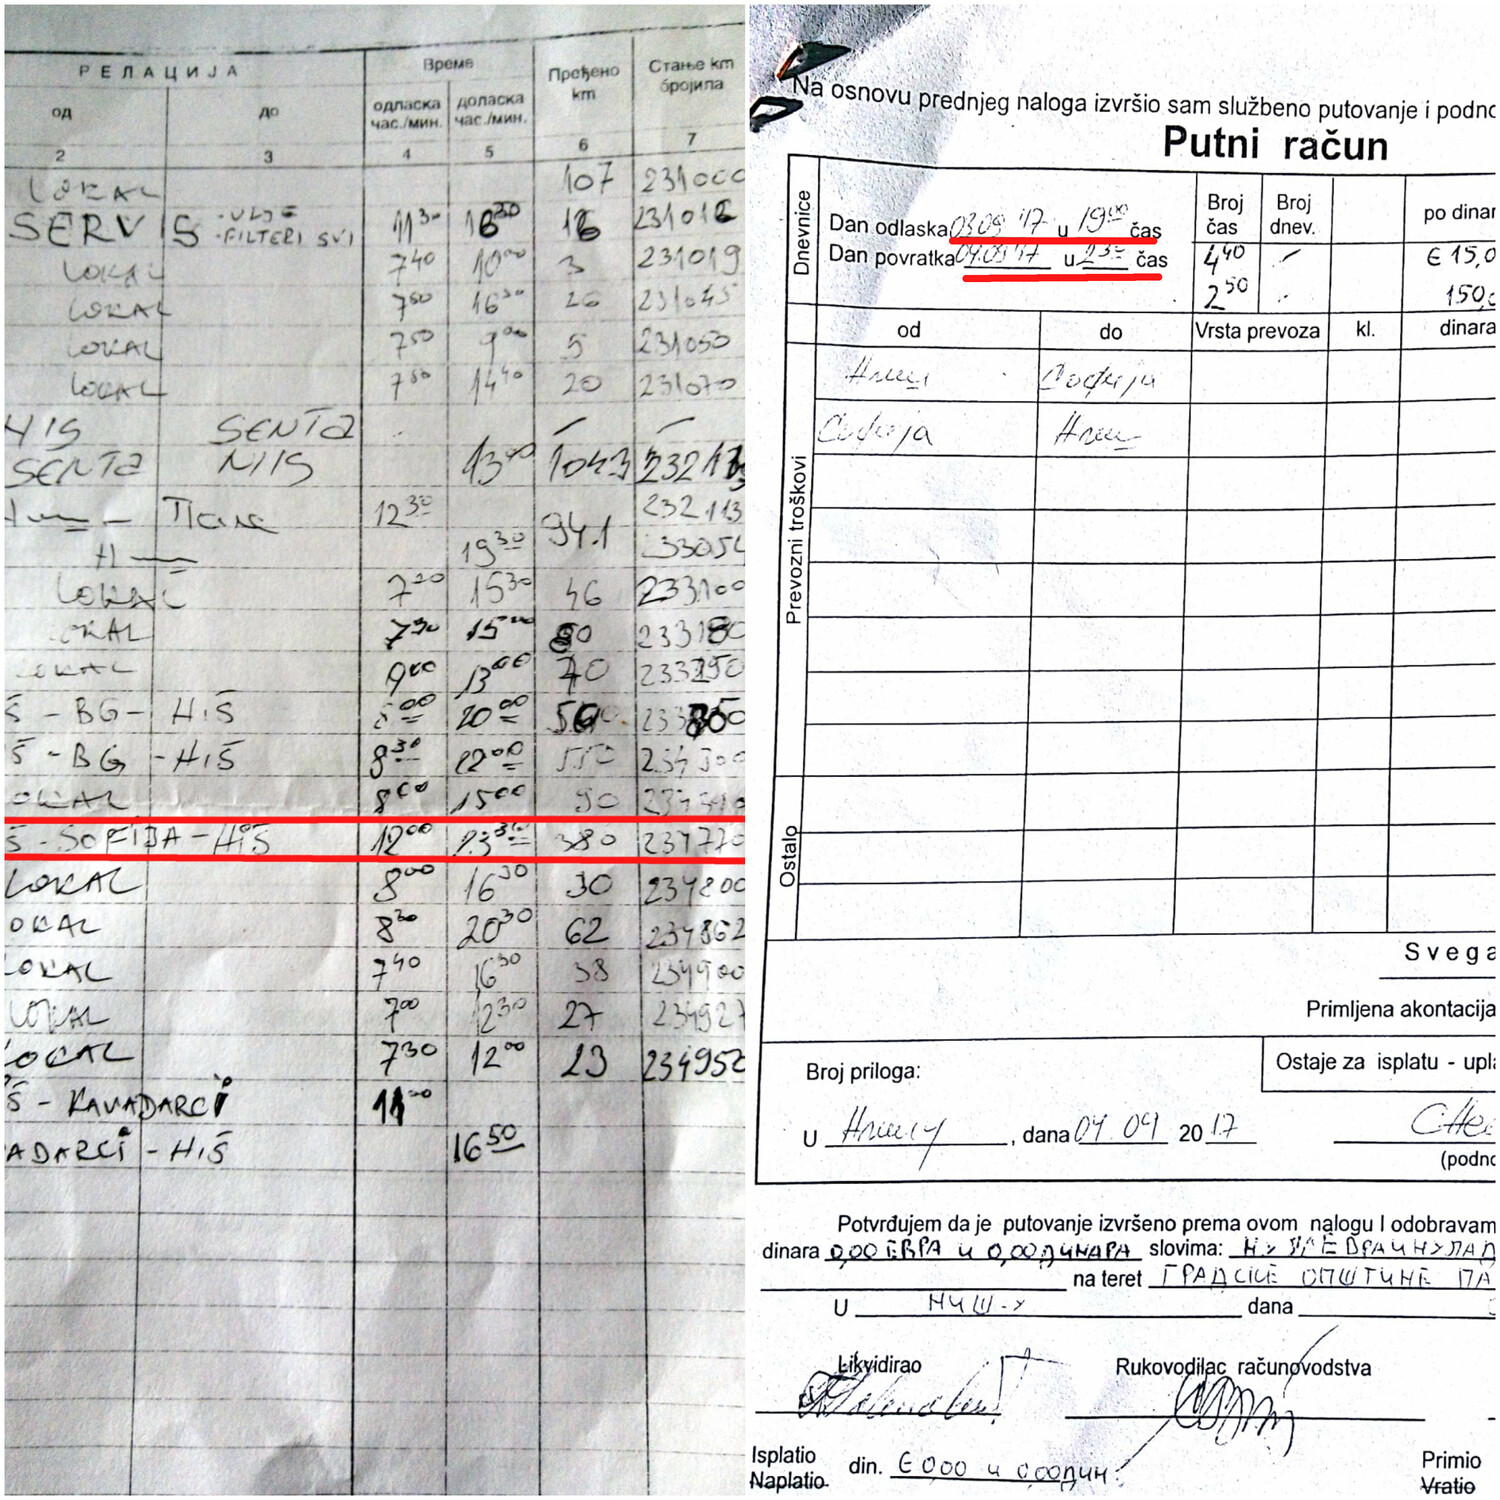 РЕЛАЦИЈА
Време
Пређено km
Стање km бројила
од
до
одласка час./мин.
доласка час./мин.
2 3 4 5 6 7
LOKAL 107 231000
SERVIS -ULJE -FILTERI SVI 11 30 16 30 16 231016
LOKAL 7 40 10 00 3 231019
LOKAL 7 50 16 30 26 231045
LOKAL 7 50 9 00 5 231050
LOKAL 7 50 14 40 20 231070
SENTA
SENTA NIIS 13 00 1043
12 30 232113
19 30 941
LOKAL 7 20 15 30 46 233100
OKAL 7 30 15 00 80 233180
OKAL 9 00 13 00 70 233250
Š - BG - HIŠ 5 00 20 00
Š - BG - HIŠ 8 30 22 00 550
OKAL 8 00 15 00 90
Š - SOFIJA - HIŠ 12 00 23 30 380 234770
LOKAL 8 00 16 30 30 234800
OKAL 8 30 20 30 62 234862
LOKAL 7 40 16 30 38 234900
LOKAL 7 00 12 30 27 234927
LOCAL 7 30 12 00 23 234950
Š - KAVADARCI 11 00
ADARCI - HIŠ 16 50
Na osnovu prednjeg naloga izvršio sam službeno putovanje i podno
Putni račun
Dnevnice
Dan odlaska 03.09 '17 u 19 00 čas
Dan povratka 04.09 17 u 23 30 čas
Broj čas
Broj dnev.
po dinar
4 40 € 15,0
2 50 150,
od do Vrsta prevoza kl. dinara
Ниш Софија
Софија Ниш
Prevozni troškovi
Ostalo
Svega
Primljena akontacija
Broj priloga:
Ostaje za isplatu - upla
U Нишу, dana 04 09 2017
(podno
Potvrđujem da je putovanje izvršeno prema ovom nalogu I odobravam
dinara 0,00 ЕВРА и 0,00 ДИНАРА slovima: НУЛА ЕВРА И НУЛА Д
na teret ГРАДСКЕ ОПШТИНЕ ПА
U НИШ-У dana
Likvidirao
Rukovodilac računovodstva
Isplatio
Naplatio
din. € 0,00 и 0,00 ДИН.
Primio
Vratio